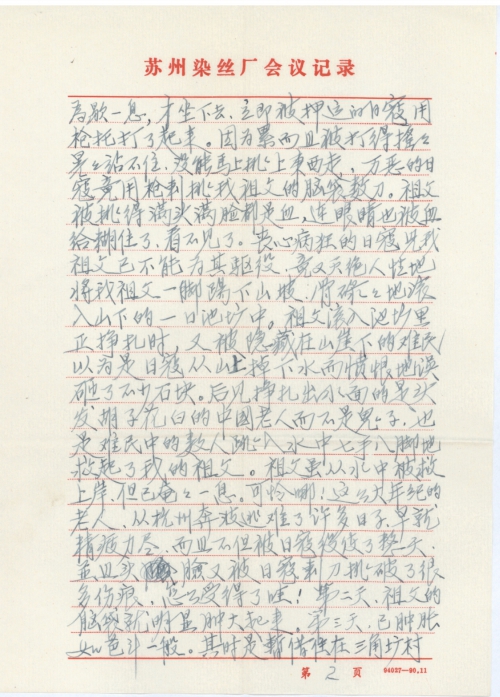 苏州染丝厂会议记录
高歇一息，才坐下去，立即被押运的日寇用
枪托打了起来。因为累而且被打得摇々
晃々站不住，没能马上挑上东西走，万恶的日
寇竟用枪刺挑我祖父的脑袋数刀，祖父
被挑得满头满脸都是血，连眼睛也被血
给糊住了，看不见了。丧心病狂的日寇见我
祖父已不能为其驱役，竟又灭绝人性地
将我祖父一脚踢下山坡，骨碌々地滚
入山下的一口池坊中。祖父滚入池坊里
正挣扎时，又被隐藏在山崖下的难民
以为是日寇从山上掉下水而愤恨地误
砸了不少石块。后见挣扎出水面的是头
发胡子花白的中国老人而不是鬼子，也
是难民中的数人跳入水中七手八脚地
救起了我的祖父。祖父虽从水中被救
上岸，但已奄々一息。可怜哪！这么大年纪的
老人，从杭州奔波逃难了许多日子，早就
精疲力尽，而且不但被日寇役使了整天，
并且头脸又被日寇刺刀挑破了很
多伤痕，怎么受得了哇！第二天，祖父的
脑袋就明显肿大起来。第三天，已肿胀
如笆斗一般。其时是暂借住在三角坊村
第 2 页 04027—90.11